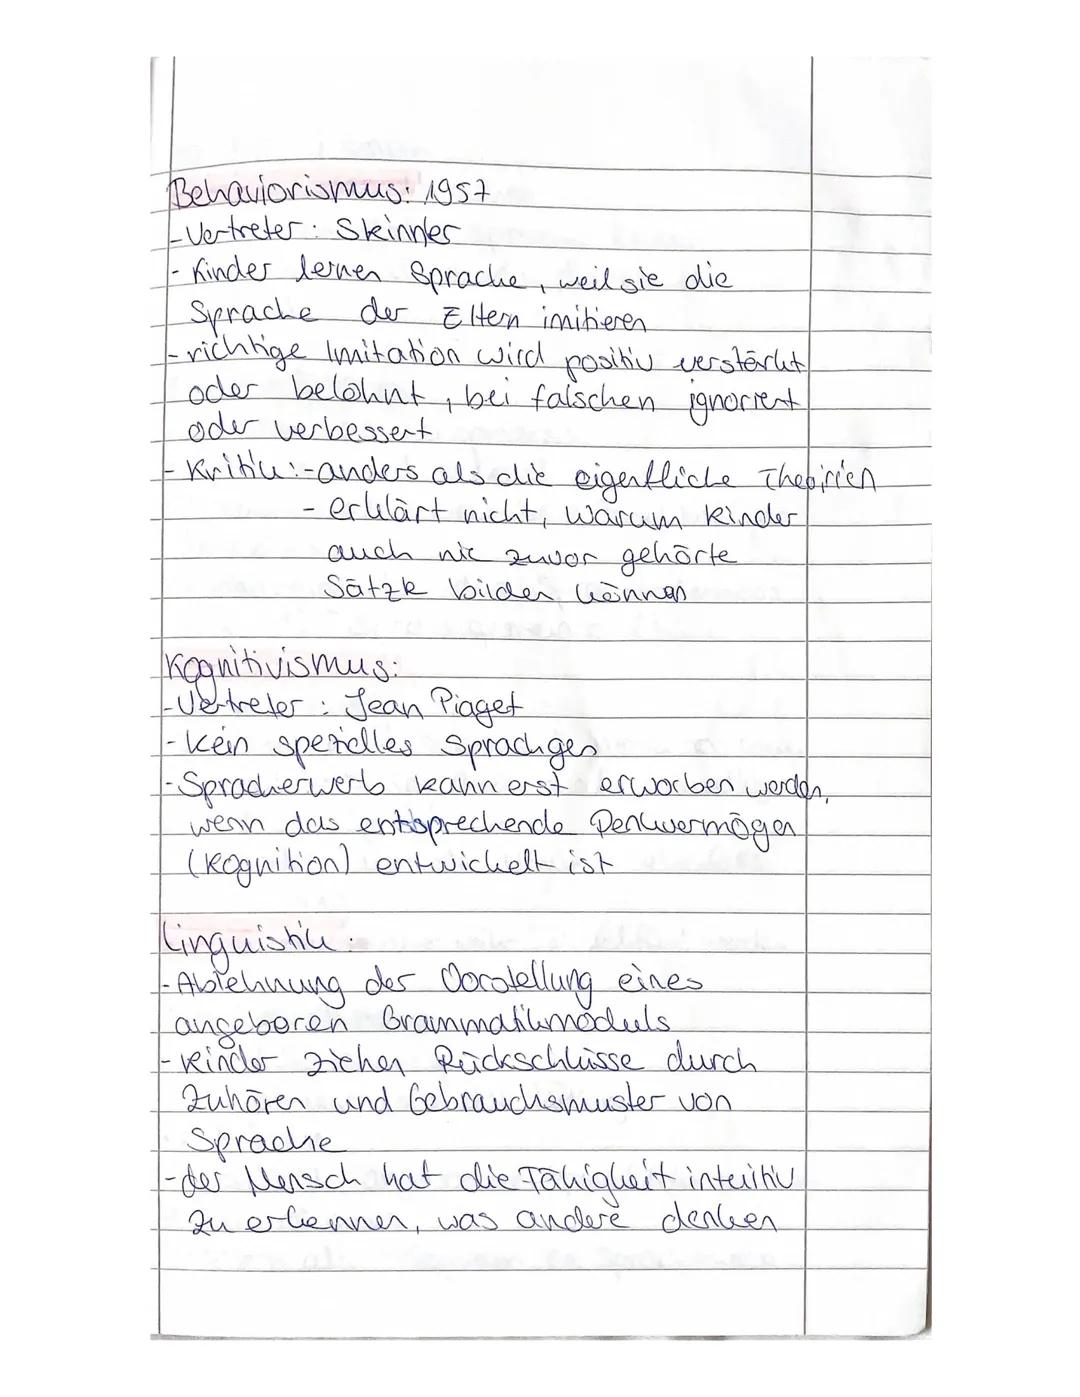 Behaviorismus: 1957
- Vertreter: Skinner
- Kinder lernen Sprache, weil sie die
Sprache der Eltern imitieren
- richtige Imitation wird positiv verstärkt
oder belohnt, bei falschen ignoriert
oder verbessert
- Kritik: - anders als die eigentliche Theorien
- erklärt nicht, warum Kinder
auch nie zuvor gehörte
Sätze bilden können
Kognitivismus:
- Vertreter: Jean Piaget
- kein spezielles Sprachgen
- Spracherwerb kann erst erworben werden,
wenn das entsprechende Denkvermögen
(Kognition) entwickelt ist
Linguistik:
- Ablehnung der Vorstellung eines
angeboren Grammatikmoduls
- Kinder ziehen Rückschlüsse durch
Zuhören und Gebrauchsmuster von
Sprache
- der Mensch hat die Fähigkeit intuitiv
zu erkennen, was andere denken